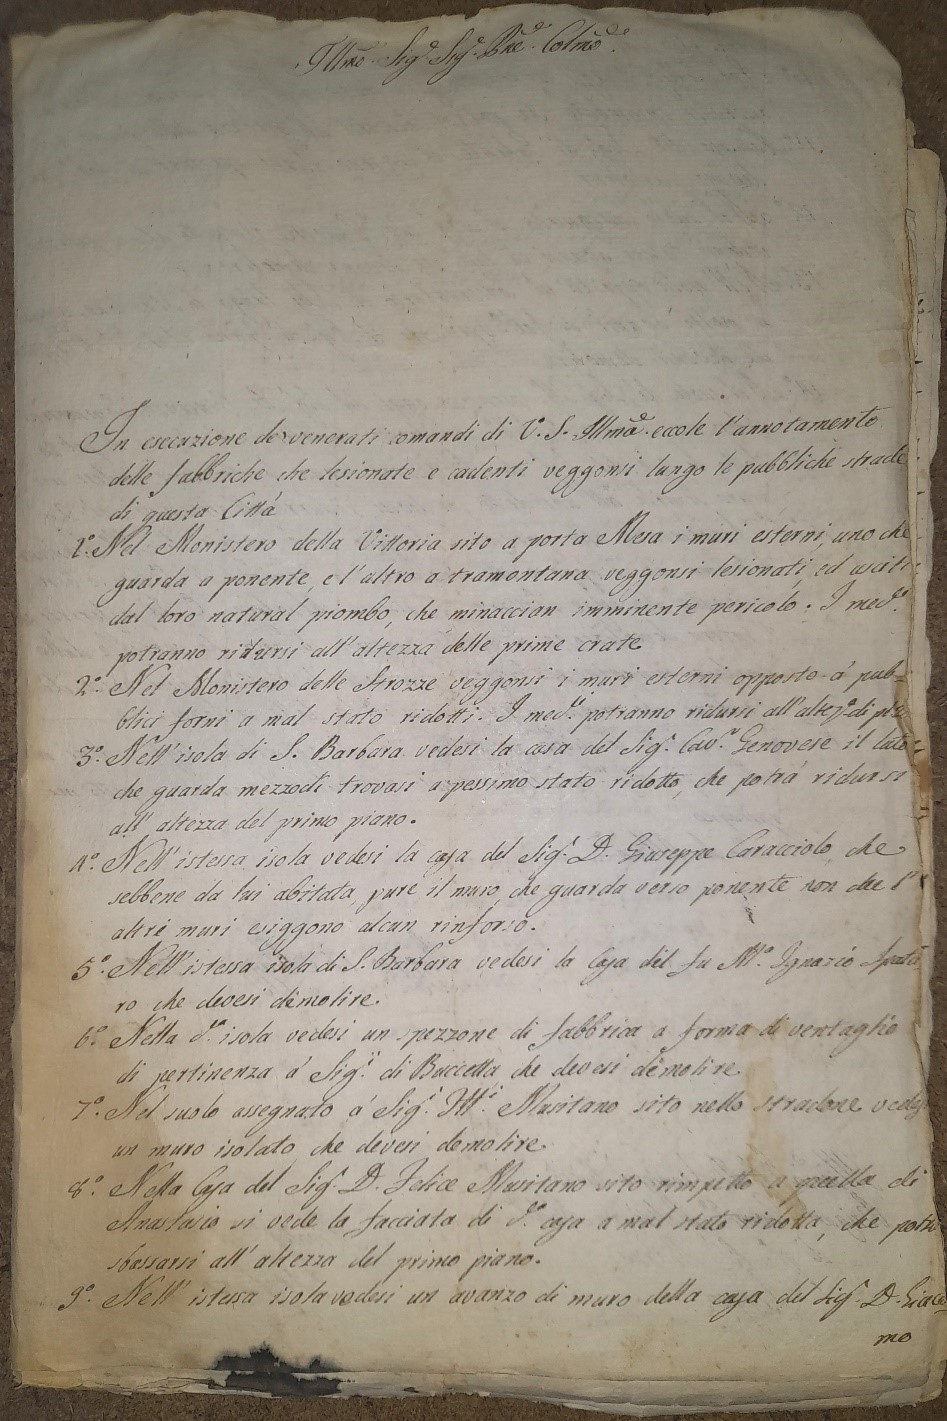 Illmo Sigr. Sigr. Pne. Colmo.
In esecuzione de' venerati comandi di V. S. Illma. eccole l'annotamento
delle fabbriche che lesionate e cadenti veggonsi lungo le pubbliche strade
di questa Città
1°. Nel Monistero della Vittoria sito a porta Mesa i muri esterni, uno che
guarda a ponente, e l'altro a tramontana veggonsi lesionati, ed usciti
dal loro natural piombo, che minaccian imminente pericolo. I medi.
potranno ridursi all'altezza delle prime crate
2°. Nel Monistero delle Strozze veggonsi i muri esterni opposto á pub-
blici forni a mal stato ridotti. I medi. potranno ridursi all'altez.a di
3°. Nell'isola di S. Barbara vedesi la casa del Sigr. Cavr. Genovese il lato
che guarda mezzodì trovasi a pessimo stato ridotto, che potrà ridursi
all'altezza del primo piano.
4°. Nell'istessa isola vedesi la casa del Sigr. D. Giuseppe Caracciolo, che
sebbene da lui abitata, pure il muro, che guarda verso ponente non che l'
altri muri esiggono alcun rinforso.
5°. Nell'istessa isola di S. Barbara vedesi la Casa del fu Mo. Ignazio Spata
ro che devesi demolire.
6°. Nella da. isola vedesi un spezzone di fabbrica a forma di ventaglio
di pertinenza á Sigi. di Buccetta che devesi demolire
7°. Nel suolo assegnato á Sigi. Musitano sito nello stradone vedesi
un muro isolato, che devesi demolire
8°. Nella Casa del Sigr. D. Felice Musitano sito rimpetto a quella di
Anastasio si vede la facciata di da. casa a mal stato ridotta, che potrà
sbassarsi all'altezza del primo piano.
9°. Nell'istessa isola vedesi un avanzo di muro della casa del Sigr. D. Giaco-
mo